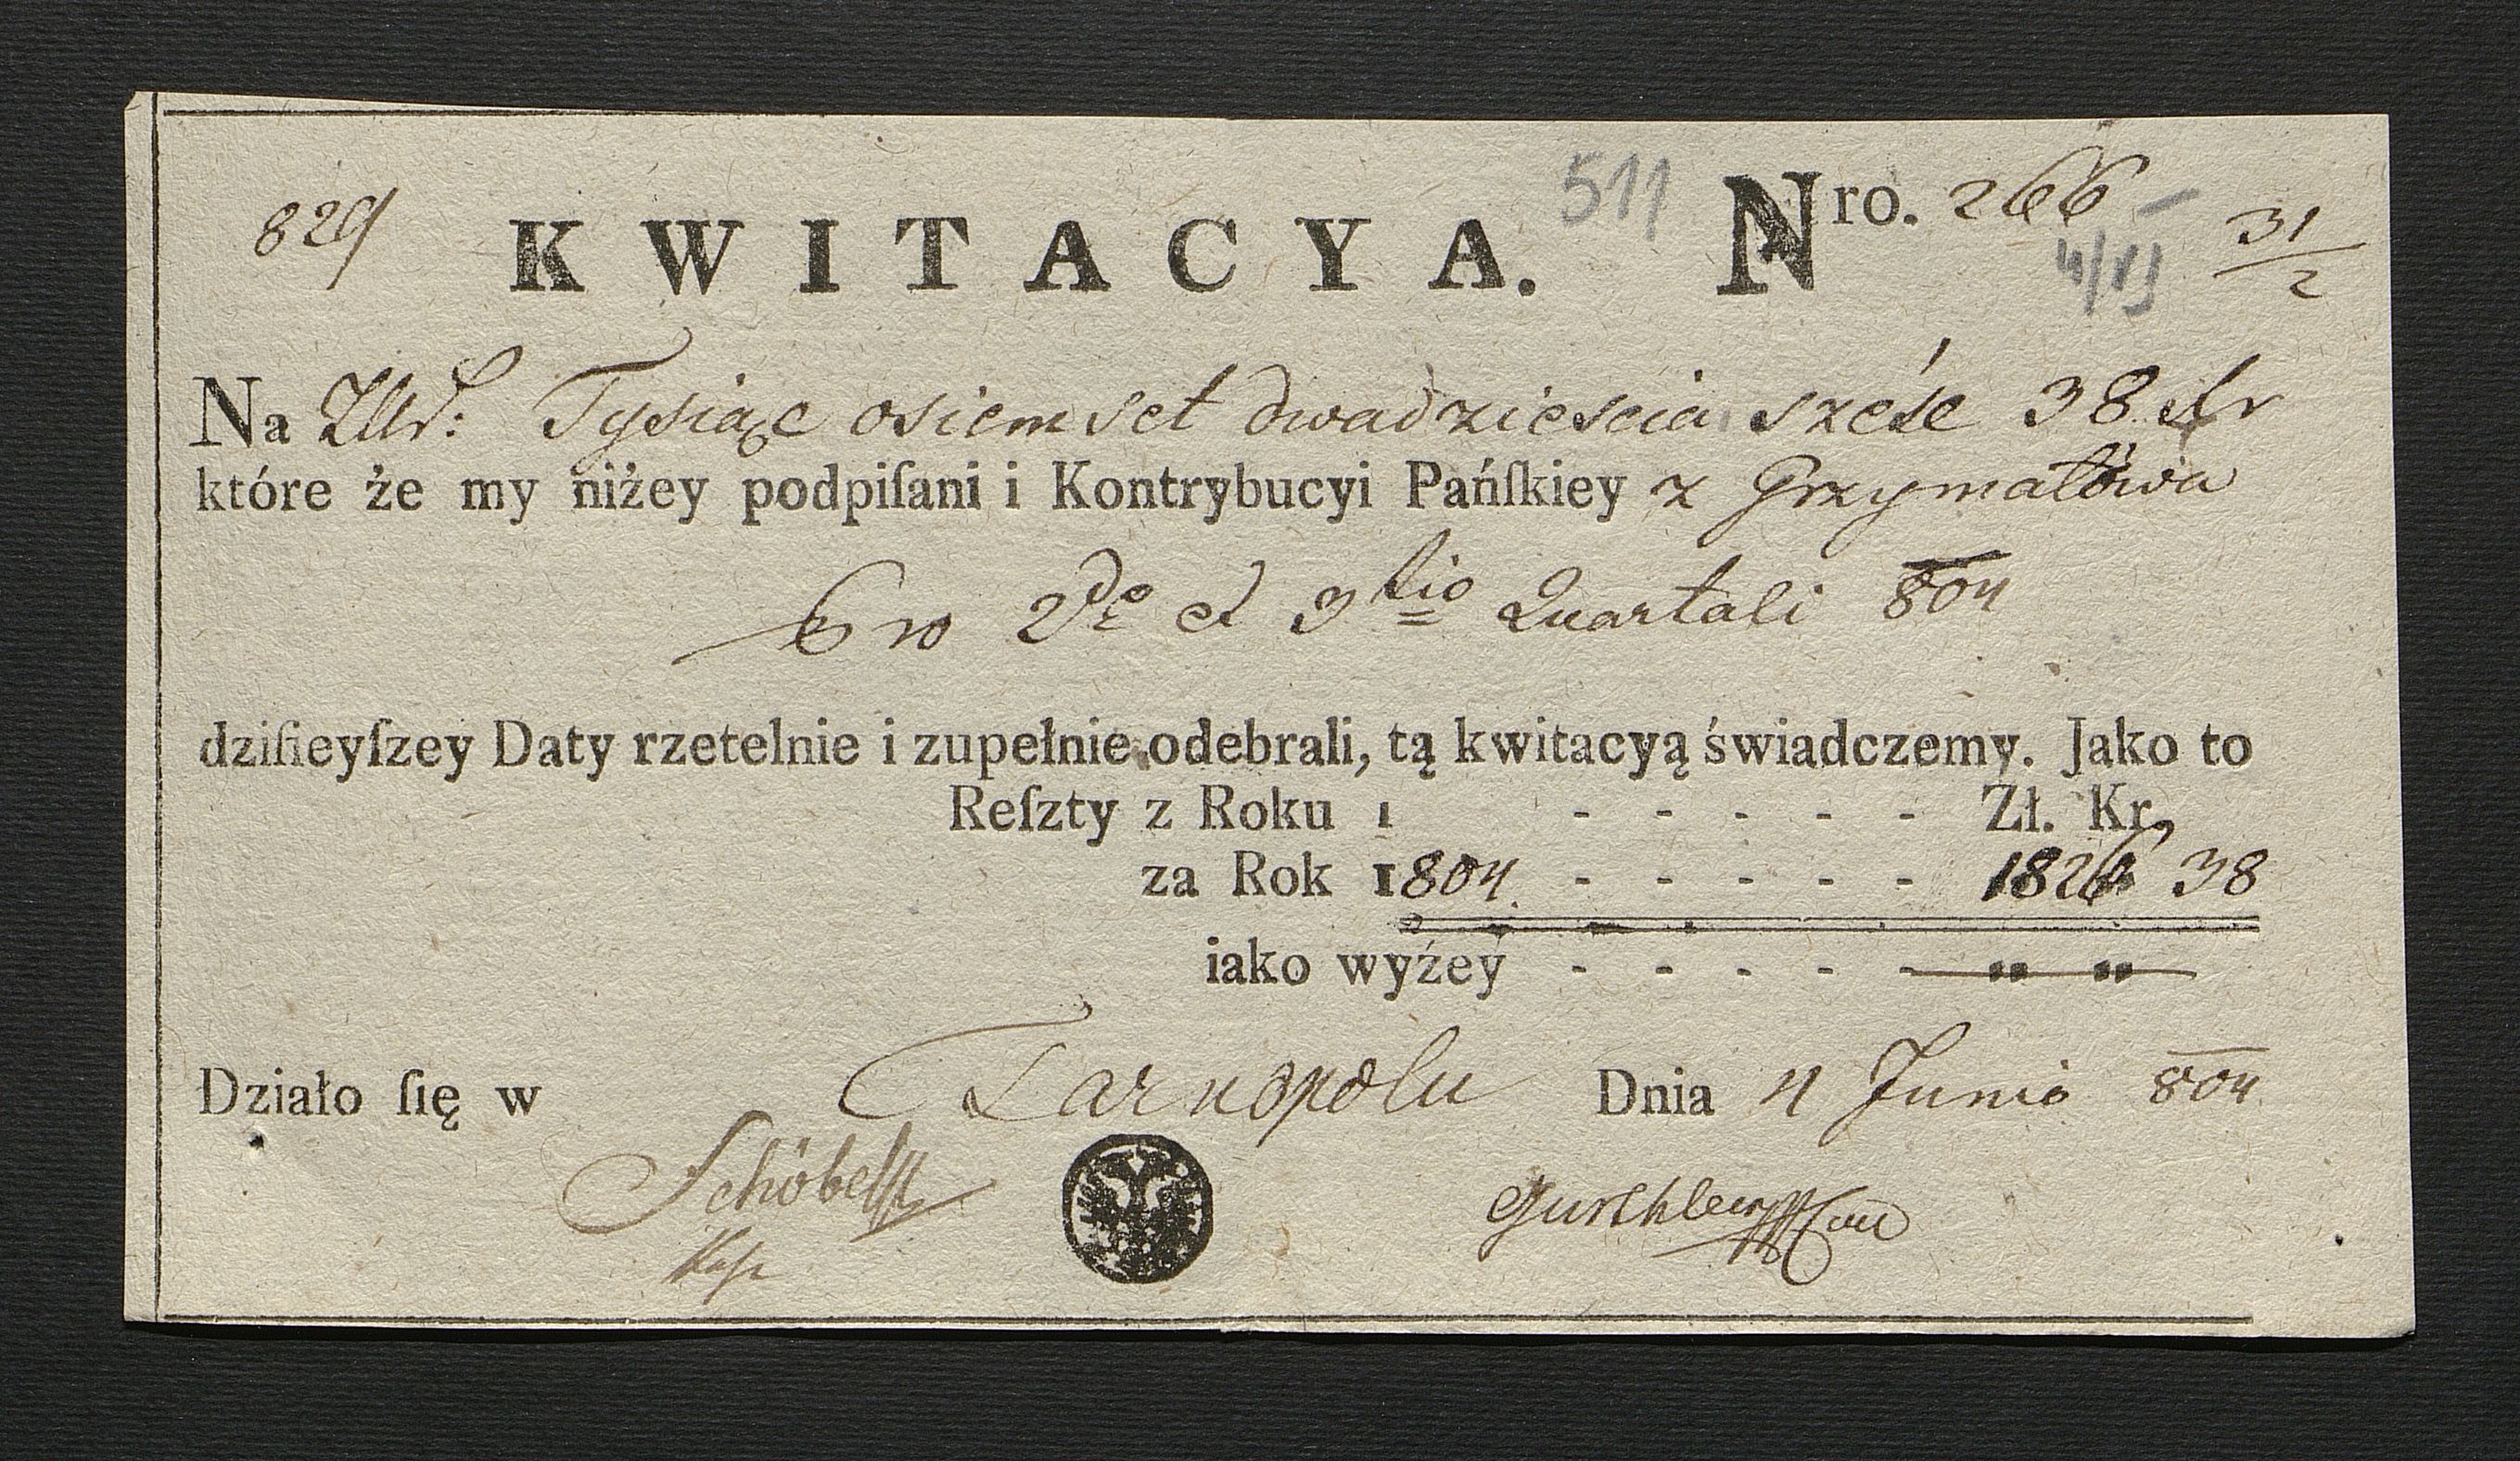 829
511
KWITACYA. Nro. 266
31/2
Na ZłłR: Tysiąc osiemset dwadziescia szešc 38 Xr
które że my niżey podpiſani i Kontrybucyi Pańſkiey z Grzymałowa
Pro 2do et 3tio Quartali 804
dziſieyſzey Daty rzetelnie i zupełnie odebrali, tą kwitacyą świadczemy. Jako to
Reſzty z Roku 1 - - - - - Zł. Kr.
za Rok 1804 - - - - - 1826 38
iako wyżey - - - - -
Działo ſię w Tarnopolu Dnia 4 Junio 804
Schöbel